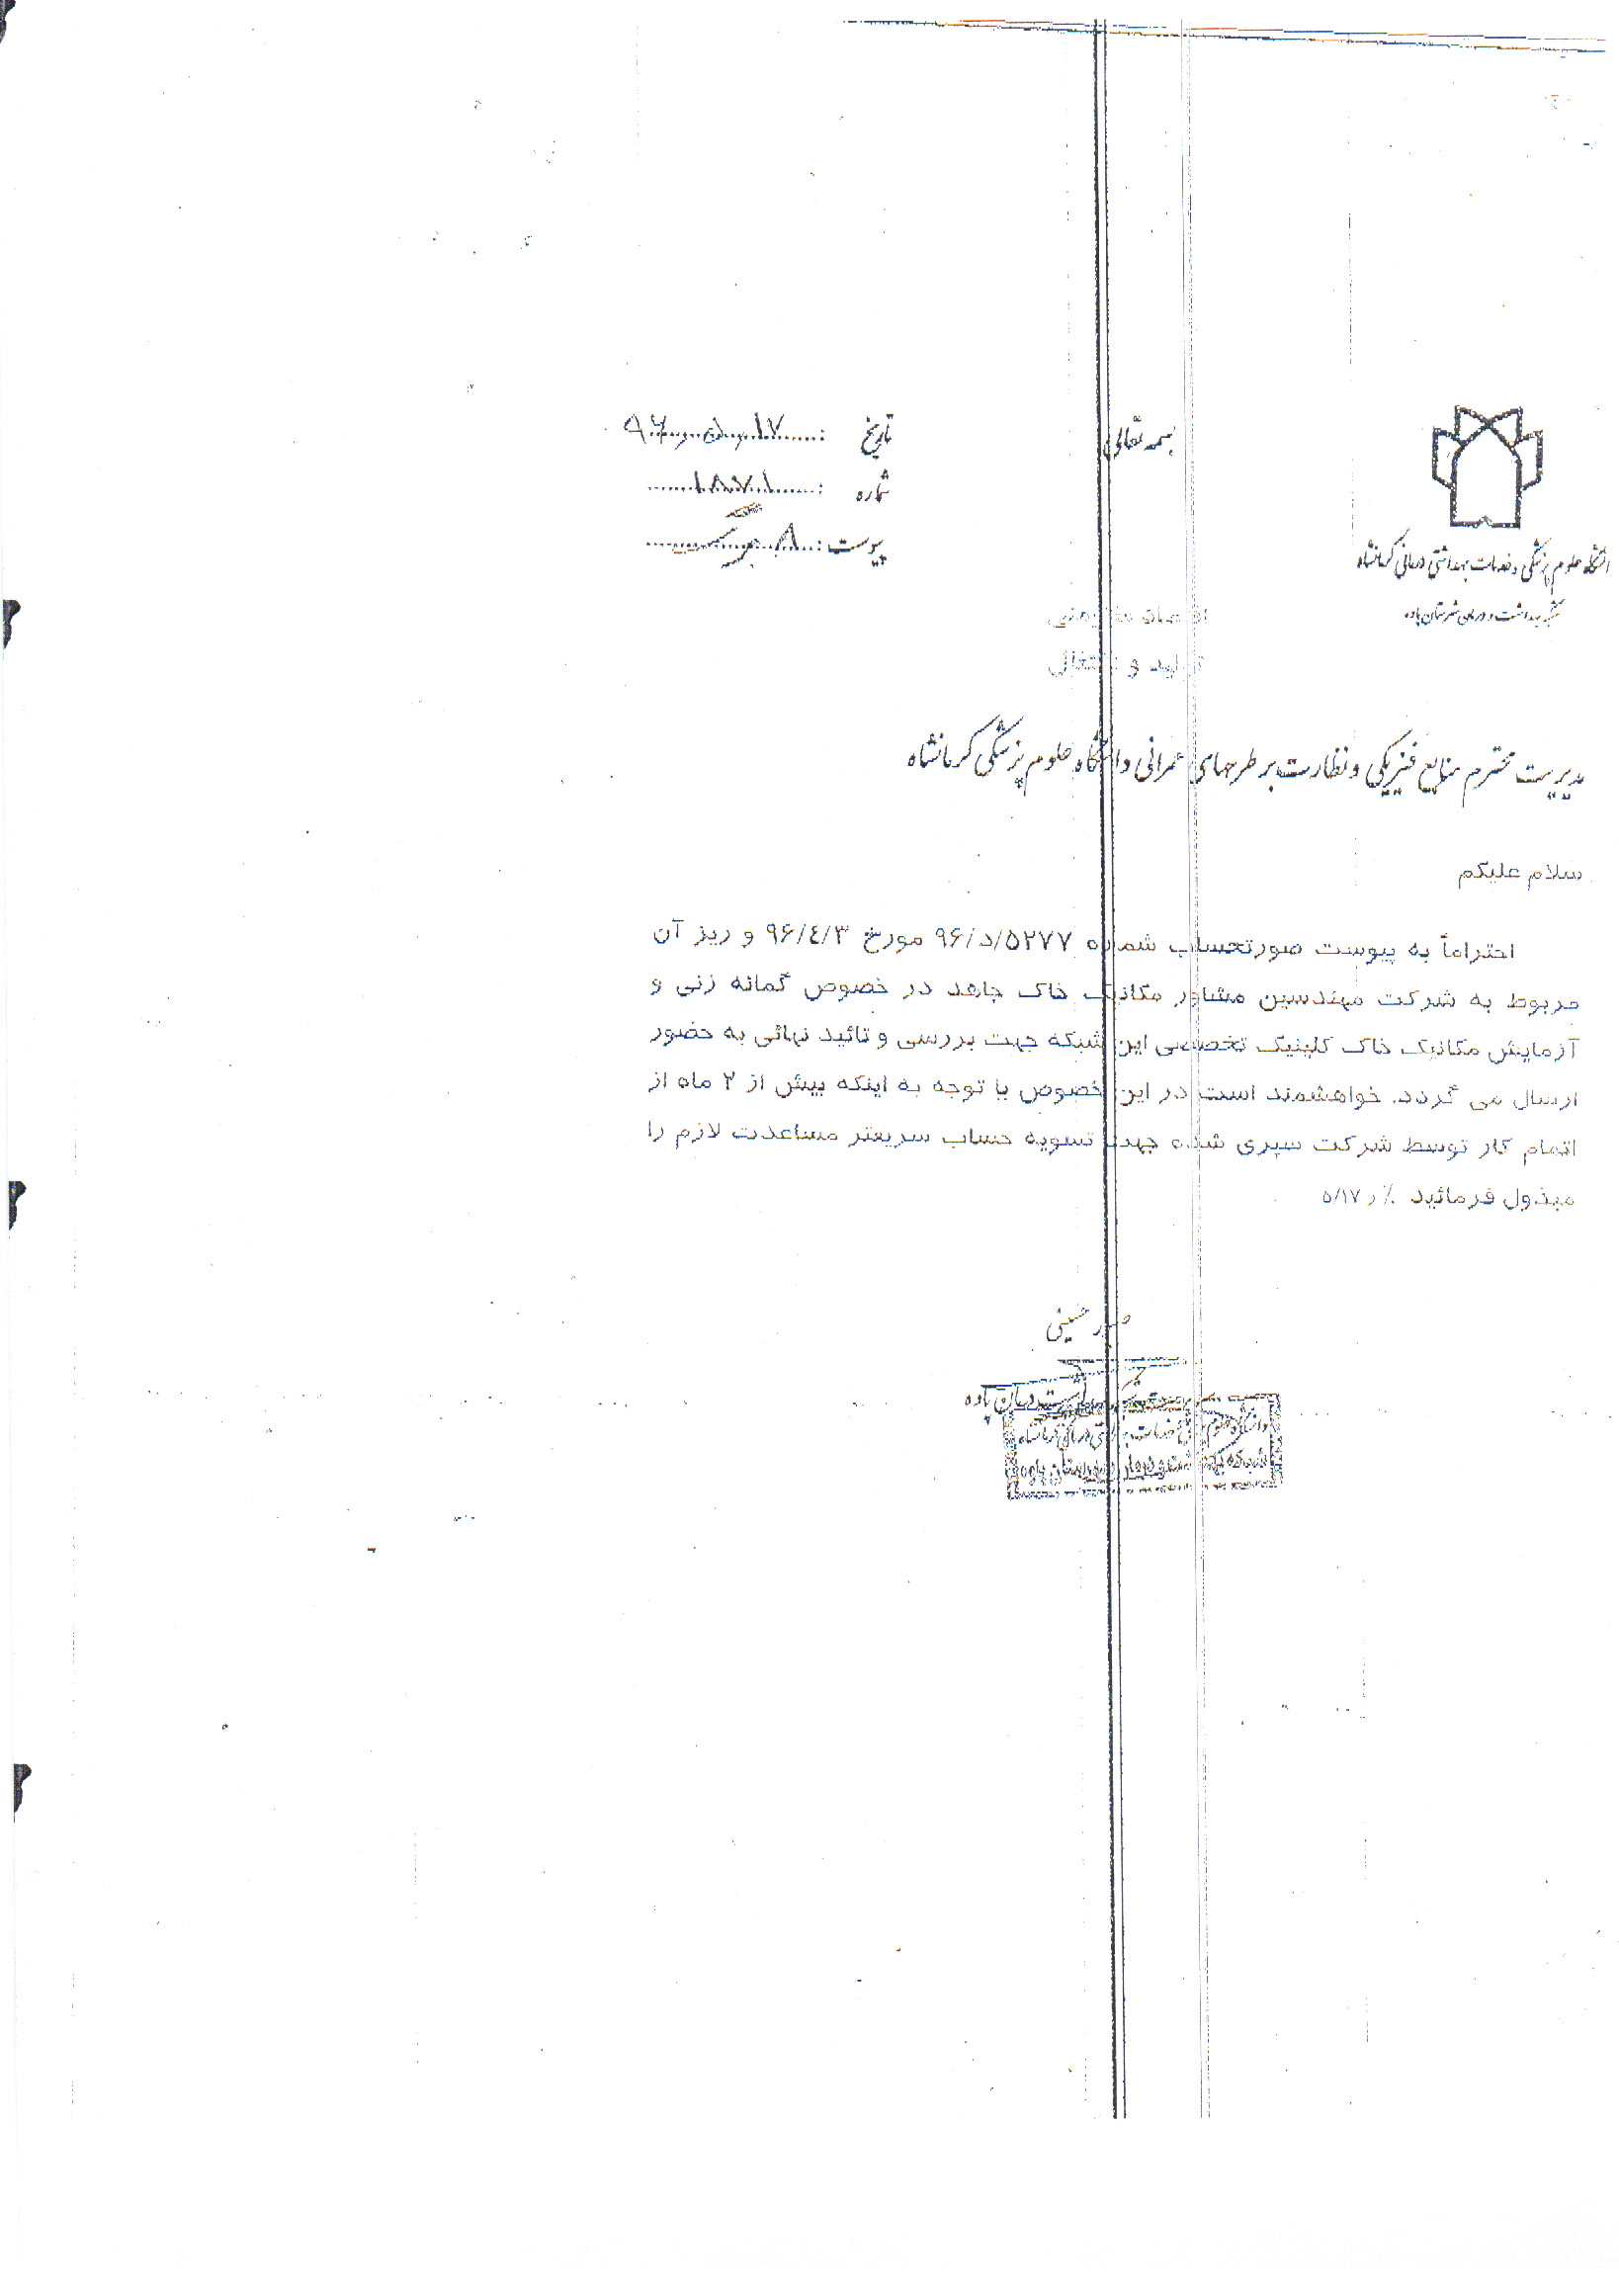 بسمه تعالی
تاریخ : ۹۶٫۵٫۱۷
شماره : ۱۸۷۱
پیوست : ۸ برگ
دانشگاه علوم پزشکی و خدمات بهداشتی درمانی کرمانشاه
شبکه بهداشت و درمان شهرستان پاوه
اقتصاد مقاومتی
تولید و اشتغال
مدیریت محترم منابع فیزیکی و نظارت بر طرحهای عمرانی دانشگاه علوم پزشکی کرمانشاه
سلام علیکم
احتراماً به پیوست صورتحساب شماره ۹۶/د/۵۲۷۷ مورخ ۹۶/٤/۳ و ریز آن
مربوط به شرکت مهندسین مشاور مکانیک خاک جاهد در خصوص گمانه زنی و
آزمایش مکانیک خاک کلینیک تخصصی این شبکه جهت بررسی و تائید نهائی به حضور
ارسال می گردد. خواهشمند است در این خصوص با توجه به اینکه بیش از ۲ ماه از
اتمام کار توسط شرکت سپری شده جهت تسویه حساب سریعتر مساعدت لازم را
مبذول فرمائید ٪ر ۵/۱۷
حسینی
بهداشت درمان پاوه
دانشگاه علوم پزشکی خدمات بهداشتی درمانی کرمانشاه
شبکه بهداشت و درمان شهرستان پاوه